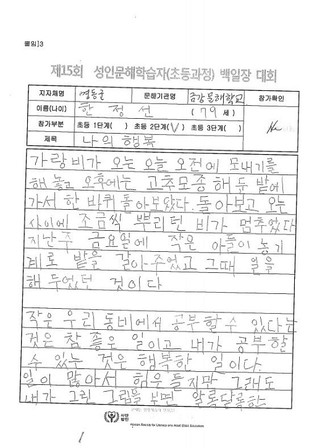 별임3
제15회 성인문해학습자(초등과정) 백일장 대회
지자체명 영동군 문해기관명 중강문해학교 참가확인
이름(나이) 한정선 (79세)
참가부문 초등 1단계( ) 초등 2단계(√) 초등 3단계( )
제목 나의 행복
가랑비가 오는 오늘 오전에 모내기를
해 놓고 오후에는 고추모종해둔 밭에
가서 한 바퀴 돌아보았다. 돌아보고 오는
사이에 조금씩 뿌리던 비가 멈추었다
지난주 금요일에 작은 아들이 농기
계로 밭을 갈아주었고 그때 일을
해 두었던 것이다
작은 우리 동네에서 공부할 수 있다는
것은 참 좋은 일이고 내가 공부할
수 있는 것은 행복한 일이다
일이 많아서 힘은 들지만 그래도
내가 그린 그림을 보면 알록달록한
1